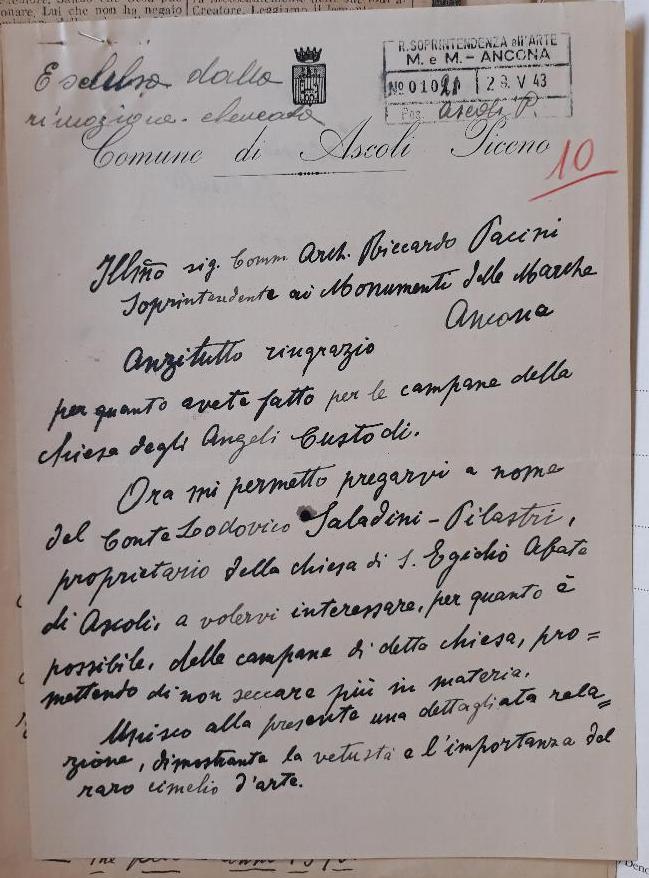 onare, Lui che non ha negato
Creatore. Leggiamo il
Esclusa dalla
rimozione. elencata
R. SOPRINTENDENZA all'ARTE
M. e M. - ANCONA
No 01021 29. V 43
Pos. Ascoli P.
Comune di Ascoli Piceno
10
Illmo sig. Comm Arch. Riccardo Pacini
Soprintendente ai Monumenti delle Marche
Ancona
Anzitutto ringrazio
per quanto avete fatto per le campane della
chiesa degli Angeli Custodi.
Ora mi permetto pregarvi a nome
del Conte Lodovico Saladini-Pilastri,
proprietario della chiesa di S. Egidio Abate
di Ascoli, a volervi interessare, per quanto è
possibile, delle campane di detta chiesa, pro=
mettendo di non seccare più in materia.
Unisco alla presente una dettagliata rela=
zione, dimostrante la vetustà e l'importanza del
raro cimelio d'arte.